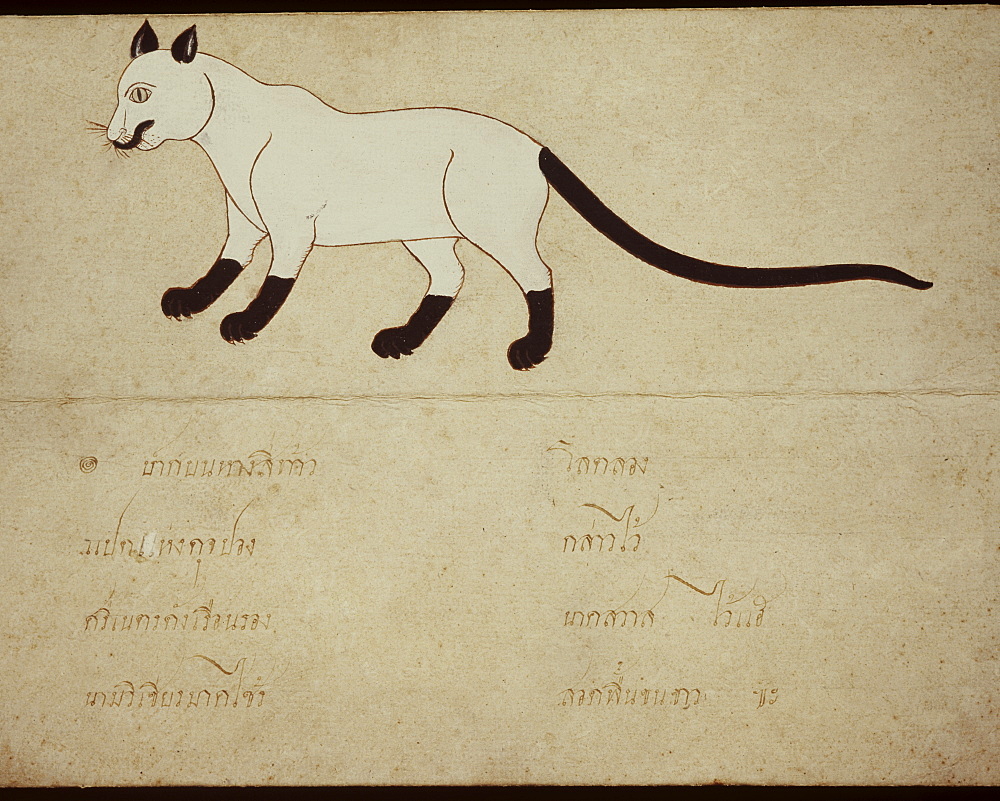 ๏ ปากบนหางสี่เท้า โสตสอง
แปดแห่งดุจปอง กล่าวไว้
ศรีเนตรดั่งเรือนรอง นาคสวาส ไว้แฮ
นามวิเชียรมาศไซร้ สอดพื้นขนขาว